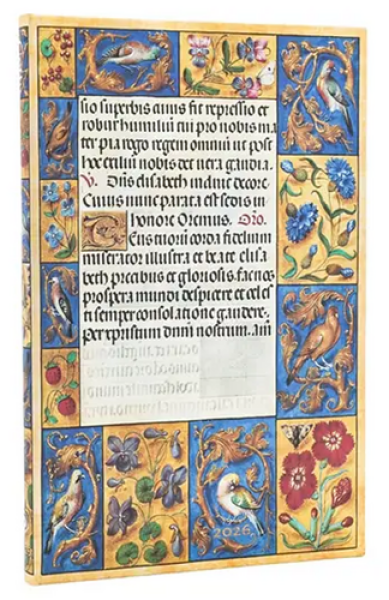 sio superbis cuius fit repressio et
robur humiliū tui pro nobis ma
ter pia rego regem omniū ut post
hec exiliū nobis det vera gaudia.
V. Dn̄s elisabeth induit decore.
Cuius nunc parata est sedis in
honore Oremus. Oro.
Deus tuorū corda fidelium
miserator illustra et beate elisa
beth precibus et gloriosis. fac nos
prospera mundi despicere et celes
ti semper consolatione gaudere.
Per xpristum dnm nostrum. am
2026